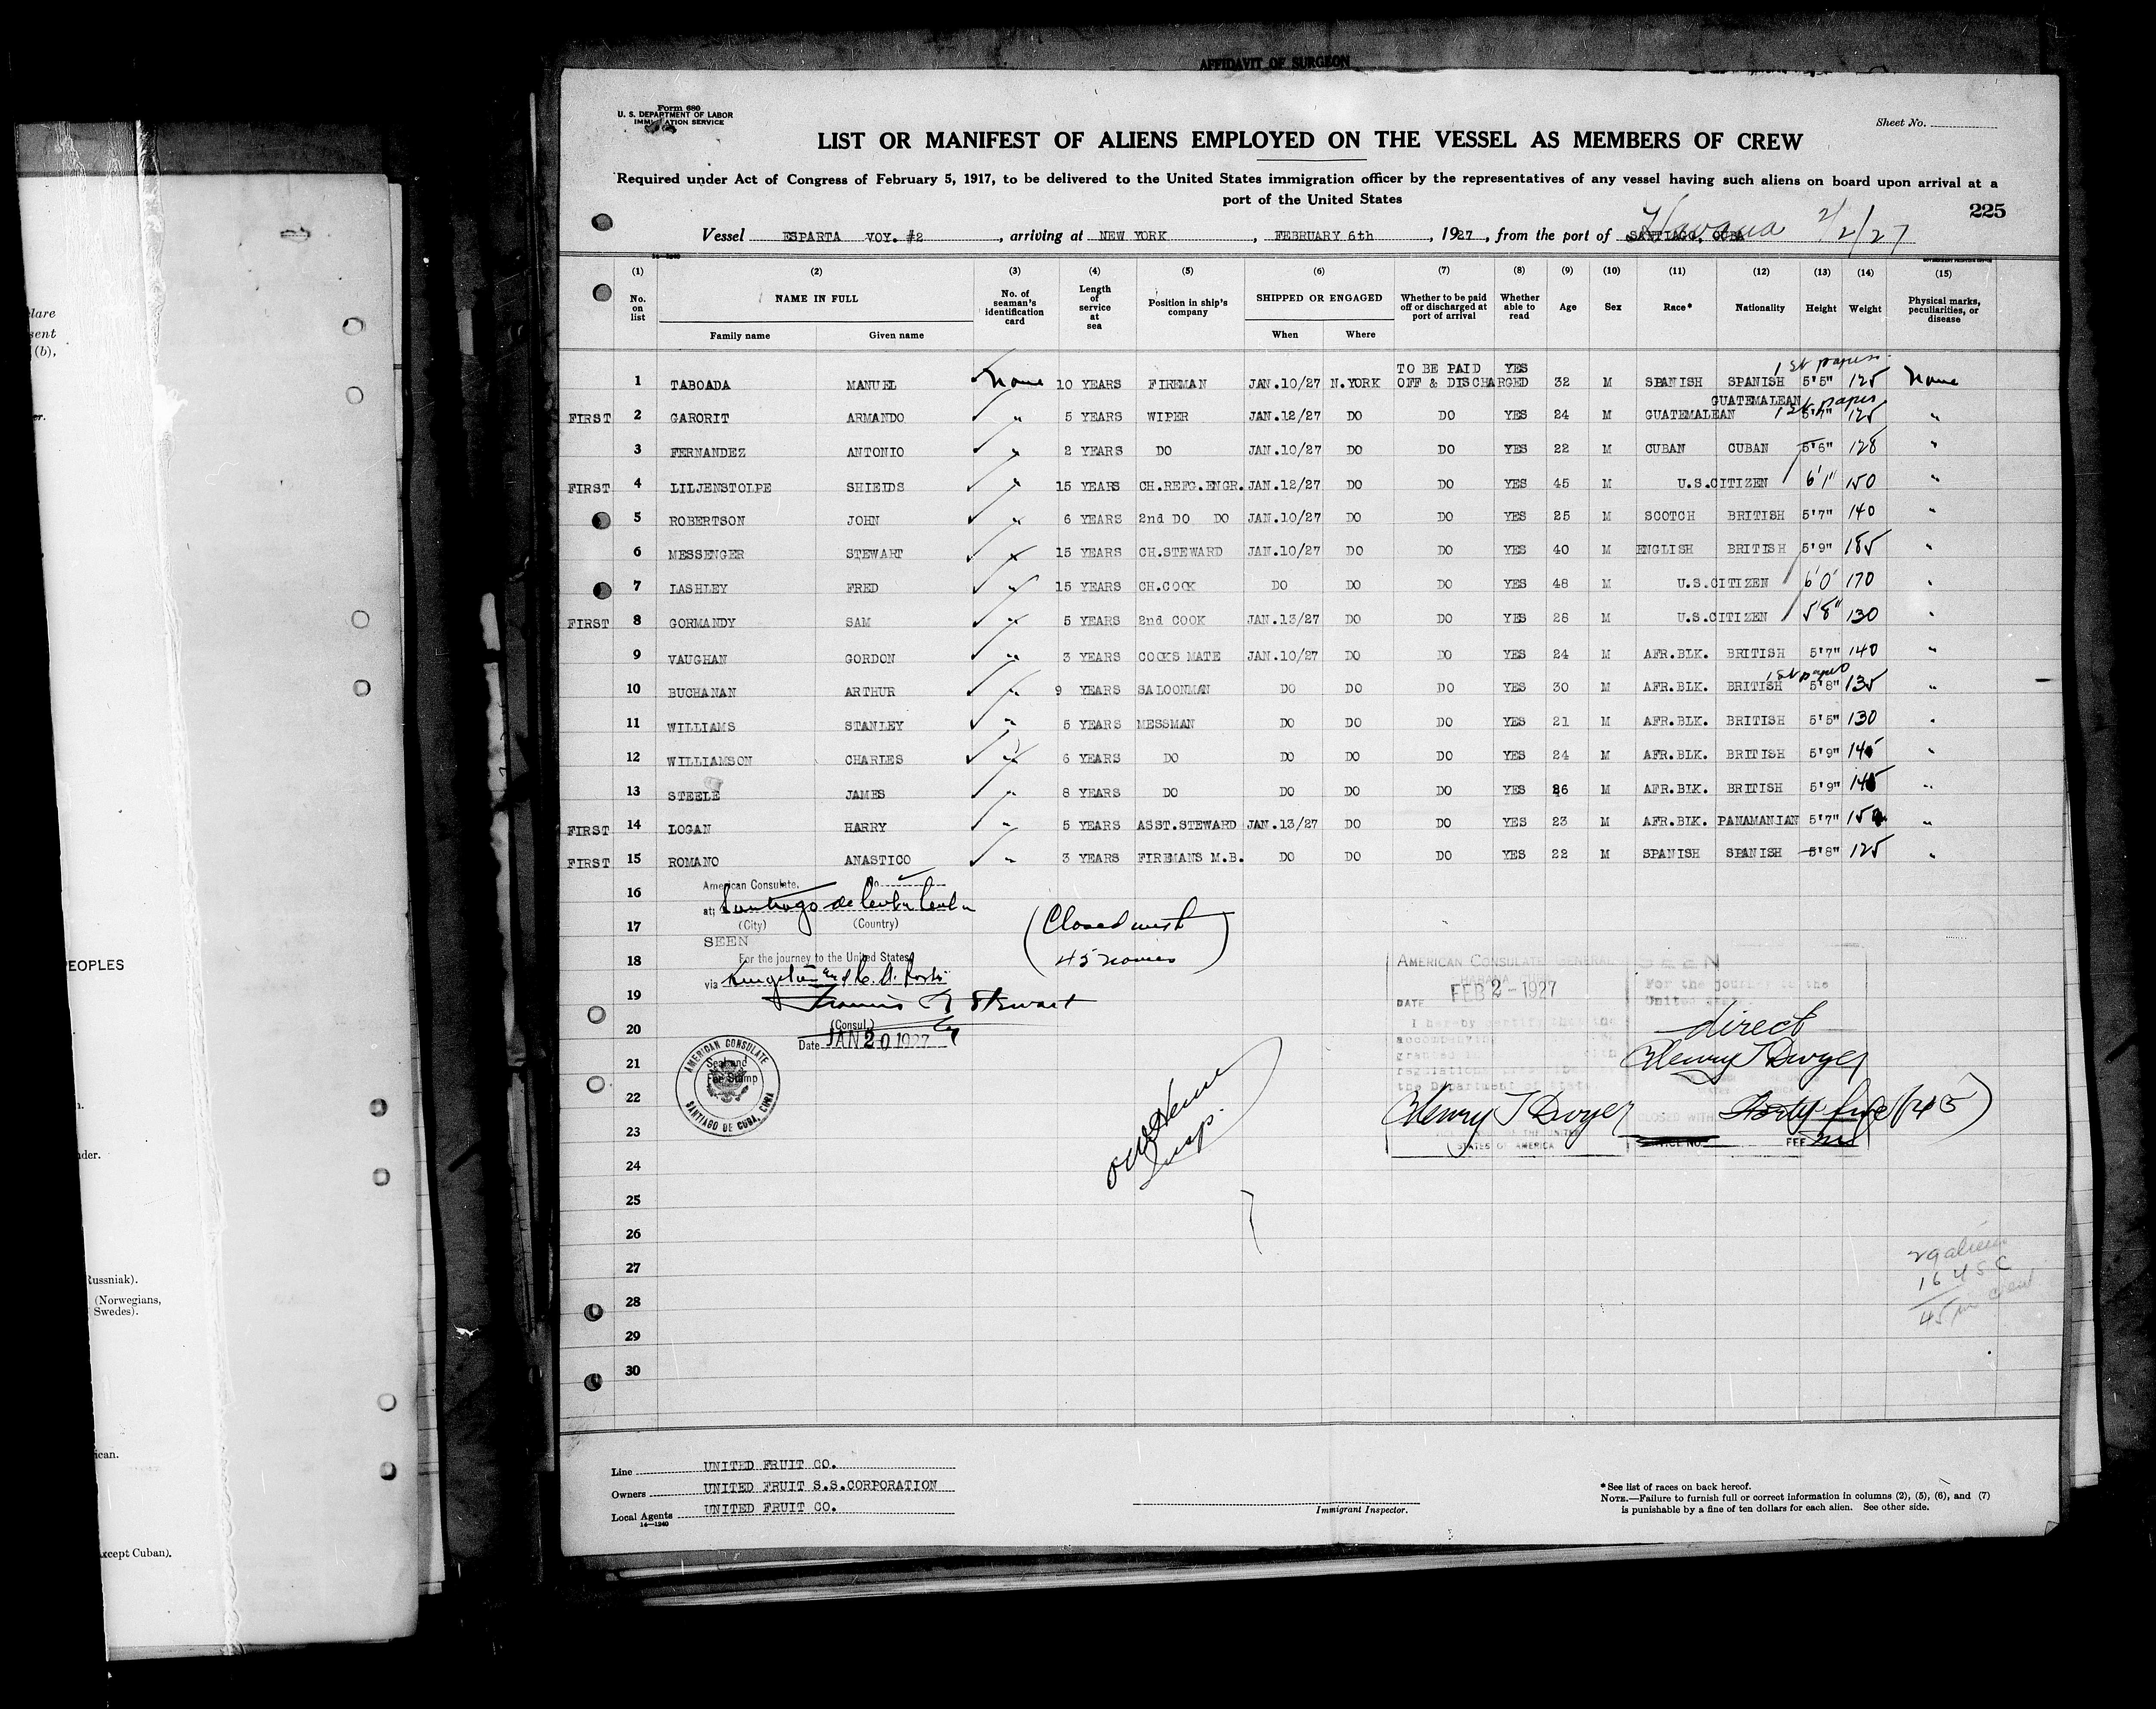 AFFIDAVIT OF SURGEON
Form 680
U. S. DEPARTMENT OF LABOR
IMMIGRATION SERVICE
Sheet No.
LIST OR MANIFEST OF ALIENS EMPLOYED ON THE VESSEL AS MEMBERS OF CREW
Required under Act of Congress of February 5, 1917, to be delivered to the United States immigration officer by the representatives of any vessel having such aliens on board upon arrival at a
port of the United States
225
Vessel ESPARTA VOY. #2, arriving at NEW YORK, FEBRUARY 6th, 1927, from the port of SANTIAGO, CUBA Havana 2/2/27
14-1240
(1) (2) (3) (4) (5) (6) (7) (8) (9) (10) (11) (12) (13) (14) (15)
No. on list NAME IN FULL Family name Given name No. of seaman's identification card Length of service at sea Position in ship's company SHIPPED OR ENGAGED When Where Whether to be paid off or discharged at port of arrival Whether able to read Age Sex Race* Nationality Height Weight Physical marks, peculiarities, or disease
1 TABOADA MANUEL None 10 YEARS FIREMAN JAN.10/27 N.YORK TO BE PAID OFF & DISCHARGED YES 32 M SPANISH SPANISH 1st papers 5'5" 125 None
FIRST 2 GARORIT ARMANDO " 5 YEARS WIPER JAN.12/27 DO DO YES 24 M GUATEMALEAN GUATEMALEAN 1st papers 5'7" 125 "
3 FERNANDEZ ANTONIO " 2 YEARS DO JAN.10/27 DO DO YES 22 M CUBAN CUBAN 5'6" 128 "
FIRST 4 LILJENSTOLPE SHIELDS " 15 YEARS CH.REFG.ENGR. JAN.12/27 DO DO YES 45 M U.S.CITIZEN 6'1" 150 "
5 ROBERTSON JOHN " 6 YEARS 2nd DO DO JAN.10/27 DO DO YES 25 M SCOTCH BRITISH 5'7" 140 "
6 MESSENGER STEWART " 15 YEARS CH.STEWARD JAN.10/27 DO DO YES 40 M ENGLISH BRITISH 5'9" 185 "
7 LASHLEY FRED " 15 YEARS CH.COOK DO DO DO YES 48 M U.S.CITIZEN 6'0" 170 "
FIRST 8 GORMANDY SAM " 5 YEARS 2nd COOK JAN.13/27 DO DO YES 28 M U.S.CITIZEN 5'8" 130 "
9 VAUGHAN GORDON " 3 YEARS COOKS MATE JAN.10/27 DO DO YES 24 M AFR.BLK. BRITISH 5'7" 140 "
10 BUCHANAN ARTHUR " 9 YEARS SALOONMAN DO DO DO YES 30 M AFR.BLK. BRITISH 1st paper 5'8" 135 "
11 WILLIAMS STANLEY " 5 YEARS MESSMAN DO DO DO YES 21 M AFR.BLK. BRITISH 5'5" 130 "
12 WILLIAMSON CHARLES " 6 YEARS DO DO DO DO YES 24 M AFR.BLK. BRITISH 5'9" 145 "
13 STEELE JAMES " 8 YEARS DO DO DO DO YES 26 M AFR.BLK. BRITISH 5'9" 145 "
FIRST 14 LOGAN HARRY " 5 YEARS ASST.STEWARD JAN.13/27 DO DO YES 23 M AFR.BLK. PANAMANIAN 5'7" 150 "
FIRST 15 ROMANO ANASTICO " 3 YEARS FIREMANS M.B. DO DO DO YES 22 M SPANISH SPANISH 5'8" 125 "
16
17
18
19
20
21
22
23
24
25
26
27
28
29
30
American Consulate, No.
at Santiago de Cuba Cuba
(City) (Country)
SEEN
For the journey to the United States
via Kingston and
Francis R Stewart
(Consul.)
Date JAN 20 1927
AMERICAN CONSULATE
Seal and
Fee Stamp
SANTIAGO DE CUBA, CUBA
(Closed with
45 names)
AMERICAN CONSULATE GENERAL
HABANA CUBA
DATE FEB 2 - 1927
I hereby certify that the
accompanying
granted in
regulations prescribed
the Department of State.
Henry T Dwyer
STATES OF AMERICA
SEEN
For the journey to the
United States.
direct
Henry T Dwyer
CLOSED WITH Forty five (45)
SERVICE NO. FEE
Insp.
29 aliens
16 USC
45 in crew
Line UNITED FRUIT CO.
Owners UNITED FRUIT S.S.CORPORATION
Local Agents UNITED FRUIT CO.
14-1240
Immigrant Inspector.
*See list of races on back hereof.
NOTE.—Failure to furnish full or correct information in columns (2), (5), (6), and (7)
is punishable by a fine of ten dollars for each alien. See other side.
(b),
PEOPLES
Russniak).
(Norwegians,
Swedes).
except Cuban).